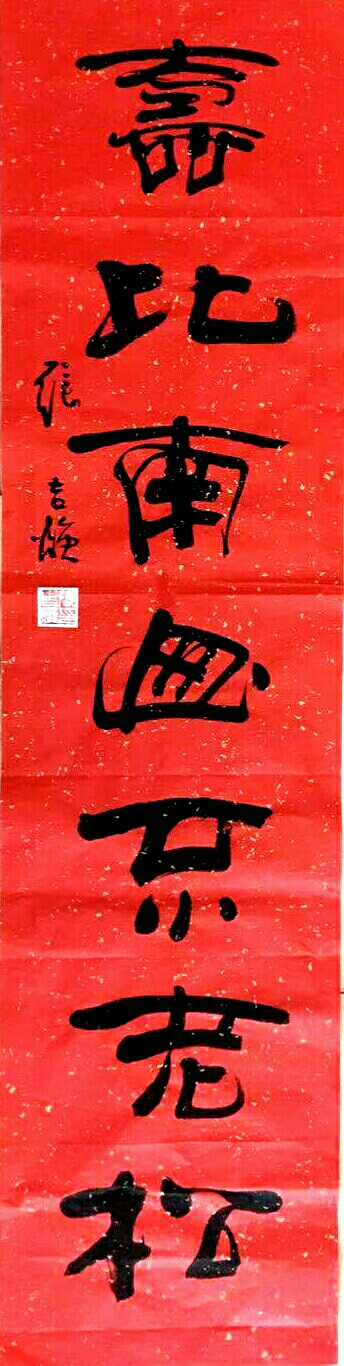 壽比南山不老松
張吉